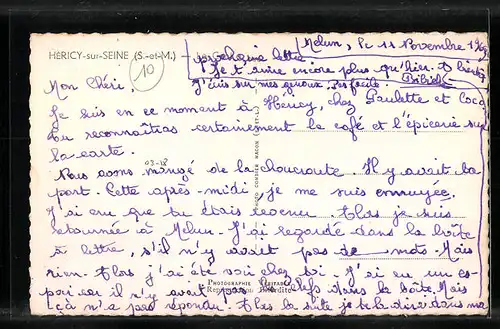 HÉRICY-sur-SEINE (S.-et-M.)
10
Melun, le 11 Novembre 1969
prochaine lettre.
Je t'aime encore plus qu'hier. A bientôt
J'écris sur mes genoux. Pas facile.
Mon Chéri,
Je suis en ce moment à Héricy, chez Paulette et Coco.
Tu reconnaîtras certainement le café et l'épicerie sur
la carte.
03-18
Nous avons mangé de la choucroute. Il y avait ta
part. Cette après-midi je me suis ennuyée.
J'ai cru que tu étais revenu. Hlas je suis
retournée à Melun. J'ai regardé dans la boîte
à lettre, s'il n'y avait pas de mots. Mais
rien. Hlas j'ai été voir chez toi. J'ai eu un es-
poir car il n'y avait pas clefs dans la boîte. Mais
çà n'a pas répondu. Hlas la suite je te la dirai dans ma
PHOTOGRAPHIE VÉRITABLE
Reproduction Interdite
PHOTO COMBIER MACON